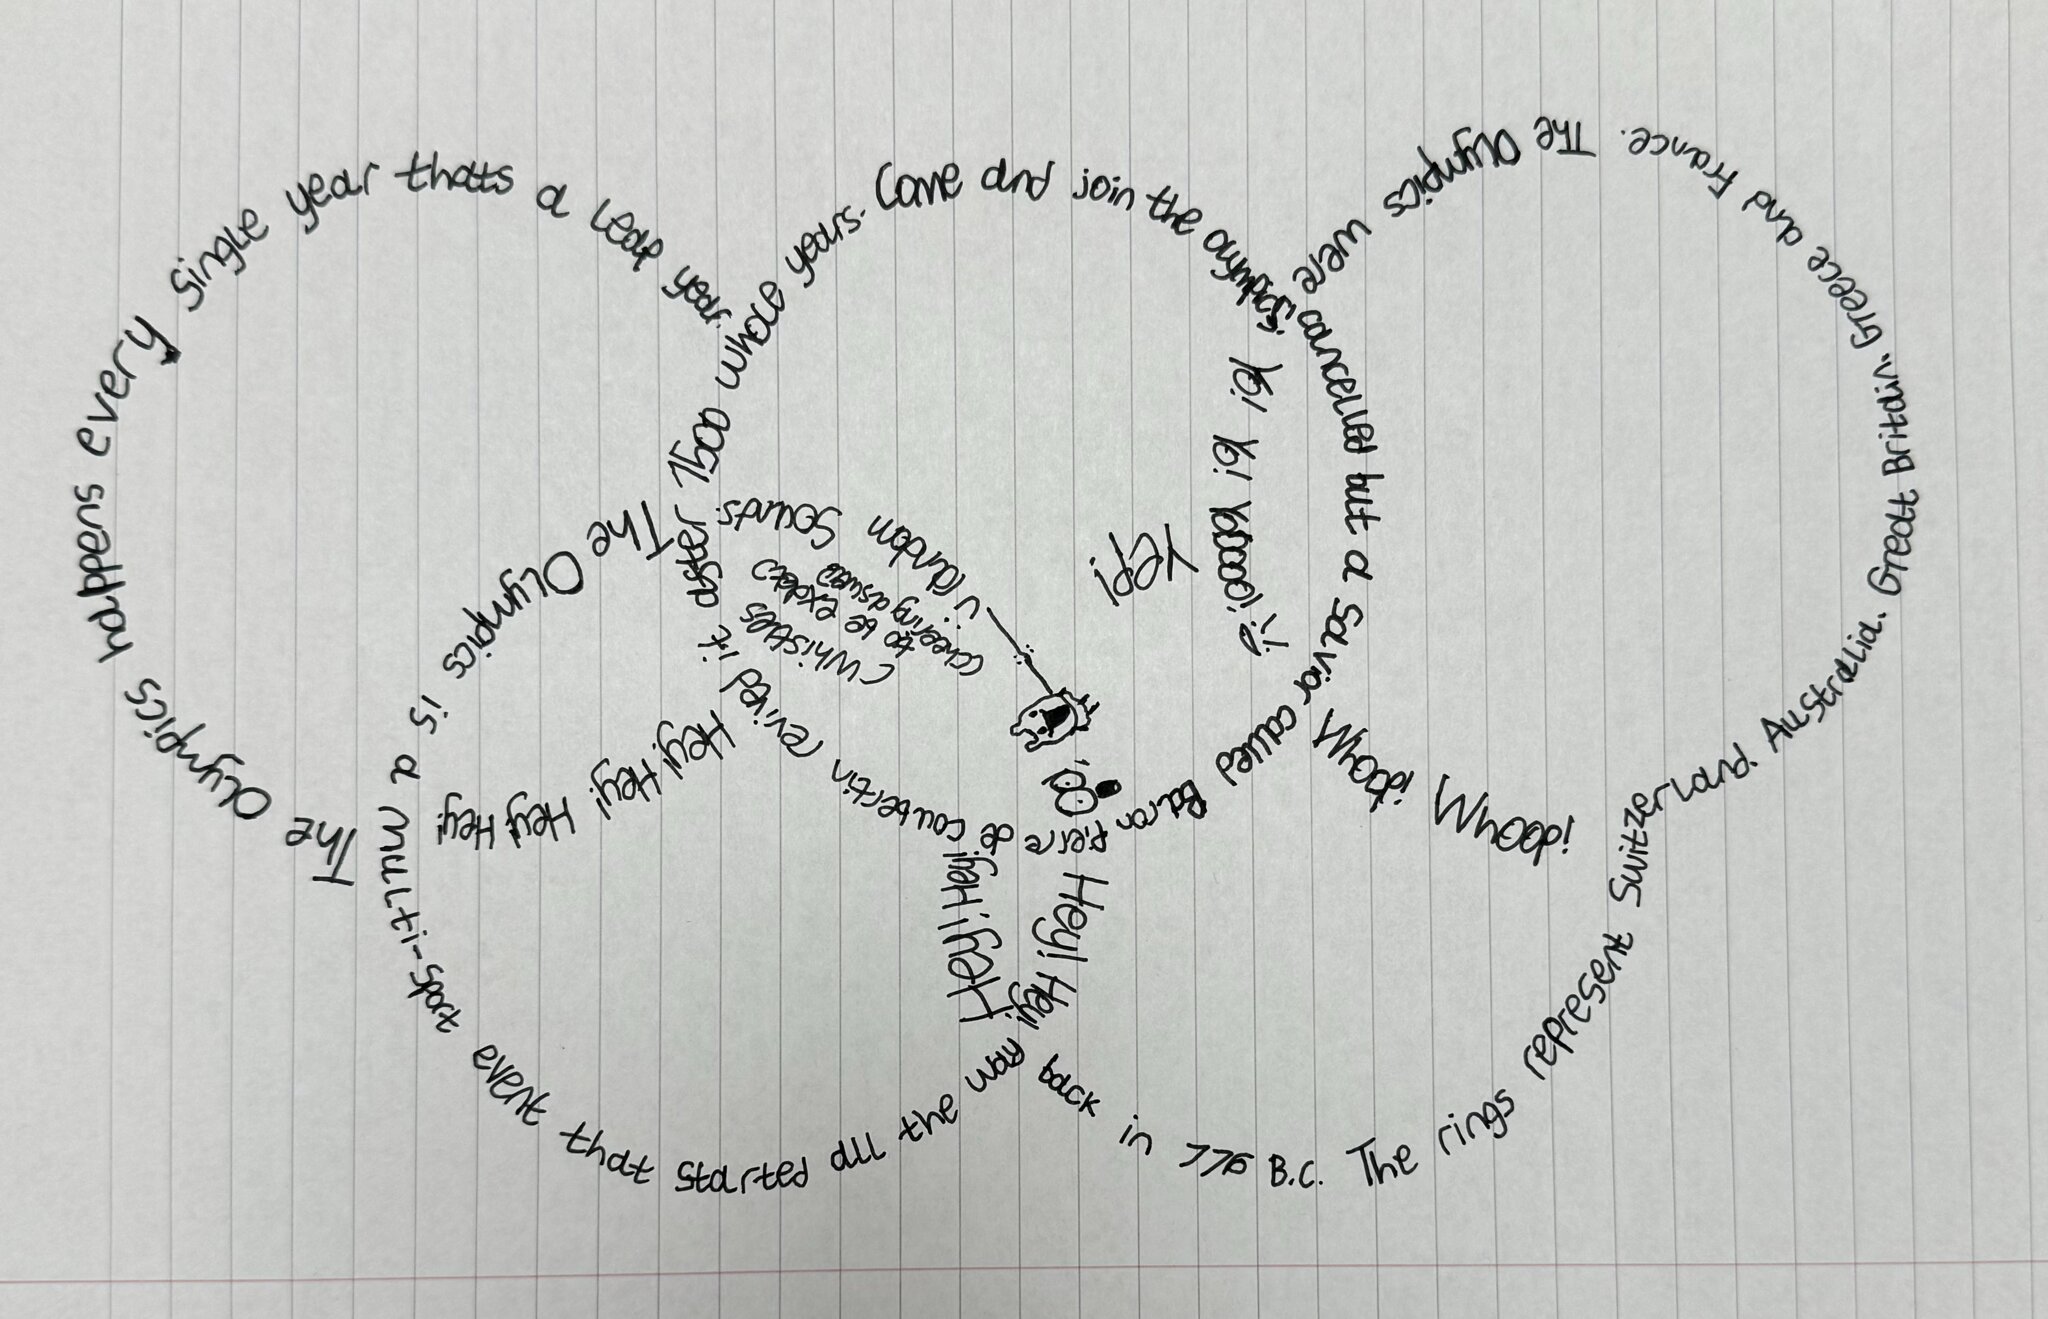 The Olympics happens every single year thatts a leap year.
The Olympics is a multi-spots event that started all the way back in 776 B.C. The rings represent Switzerland. Australia. Great Britain. Greece and France. The Olympics were cancelled but a savior called Baron Pierre de Coubertin revived it after 1500 whole years. Come and join the Olympics!
Yo! Yo! Yoooo!
Yep!
Whoop! Whoop!
Hey! Hey!
Hey! Hey!
Hey! Hey! Hey! Hey! Hey!
random sounds.
(Whistles
to be exact)